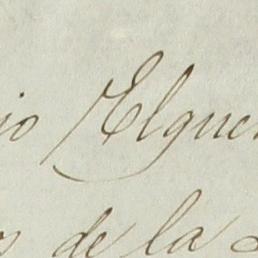 io Elgue
s de la